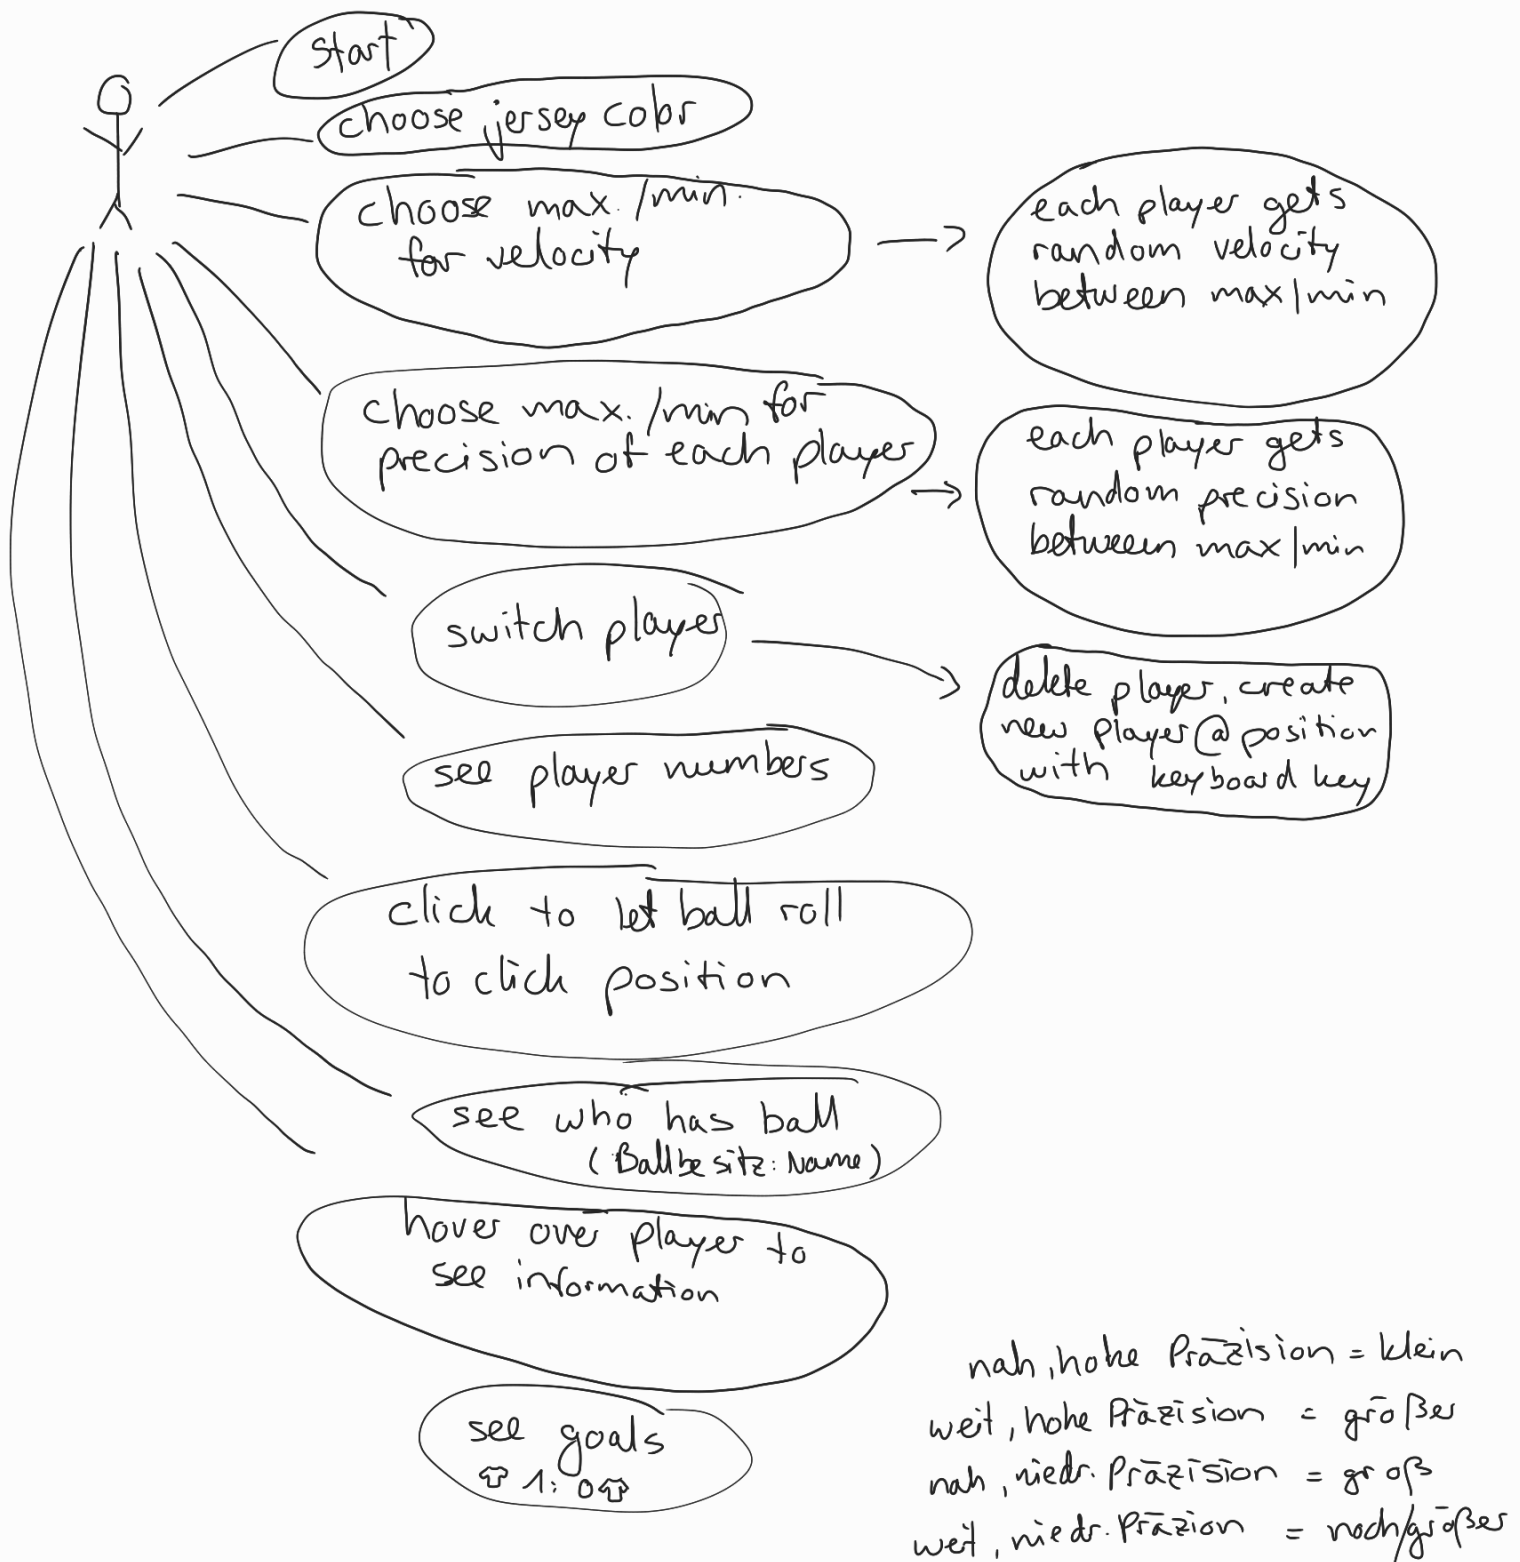 start
choose jersey color
choose max./min.
for velocity
each player gets
random velocity
between max/min
choose max./min for
precision of each player
each player gets
random precision
between max/min
switch player
delete player, create
new player@position
with keyboard key
see player numbers
click to let ball roll
to click position
see who has ball
(Ballbesitz: Name)
hover over player to
see information
see goals
1:0
nah, hohe Präzision = klein
weit, hohe Präzision = größer
nah, niedr. Präzision = groß
weit, niedr. Präzion = noch größer